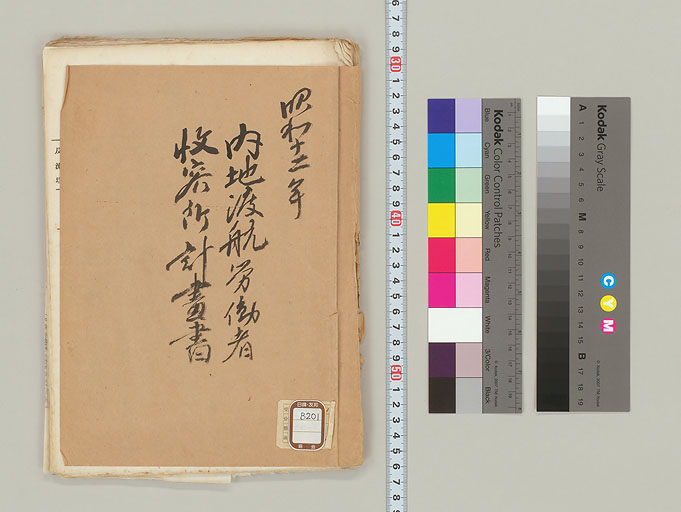 昭和十二年
内地渡航労働者
收容所計畫書
B201
Kodak Color Control Patches
Blue
Cyan
Green
Yellow
Red
Magenta
White
3/Color
Black
© Kodak, 2007 TM: Kodak
Kodak Gray Scale
C
Y
M
A
1
2
3
4
5
6
M
8
9
10
11
12
13
14
15
B
17
18
19
© Kodak, 2007 TM: Kodak
6
7
8
9
30
1
2
3
4
5
6
7
8
9
40
1
2
3
4
5
6
7
8
9
50
1
2
3
4
5
6
7
8